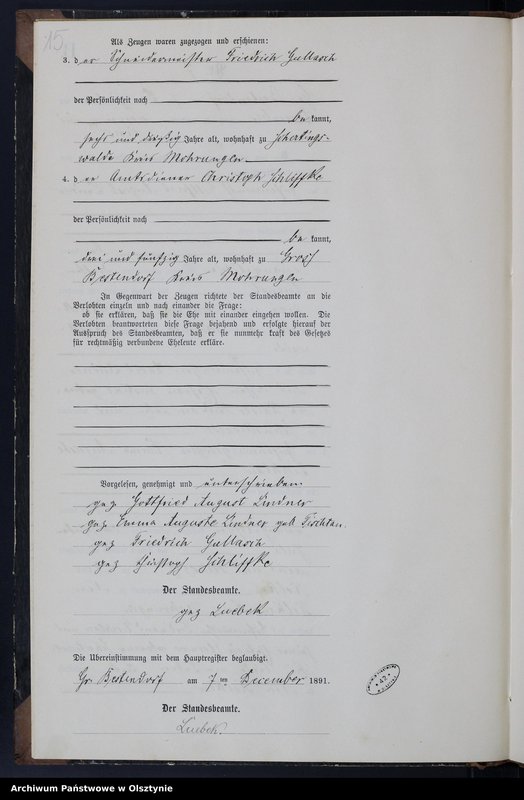 15
Als Zeugen waren zugezogen und erschienen:
3. der Schneidermeister Friedrich Gullasch
der Persönlichkeit nach
be kannt,
sechs und dreißig Jahre alt, wohnhaft zu Schertings-
walde Kreis Mohrungen
4. der Amtsdiener Christoph Schliffke
der Persönlichkeit nach
be kannt,
drei und fünfzig Jahre alt, wohnhaft zu Groß
Bestendorf Kreis Mohrungen
In Gegenwart der Zeugen richtete der Standesbeamte an die
Verlobten einzeln und nach einander die Frage:
ob sie erklären, daß sie die Ehe mit einander eingehen wollen. Die
Verlobten beantworteten diese Frage bejahend und erfolgte hierauf der
Ausspruch des Standesbeamten, daß er sie nunmehr kraft des Gesetzes
für rechtmäßig verbundene Eheleute erkläre.
Vorgelesen, genehmigt und unterschrieben.
gez Gottfried August Lindner
gez Emma Auguste Lindner geb
gez Friedrich Gullasch
gez Christoph Schliffke
Der Standesbeamte.
gez Luebeck
Die Übereinstimmung mit dem Hauptregister beglaubigt.
Gr. Bestendorf am 7 ten December 1891.
Der Standesbeamte.
Luebeck.
Archiwum Państwowe w Olsztynie